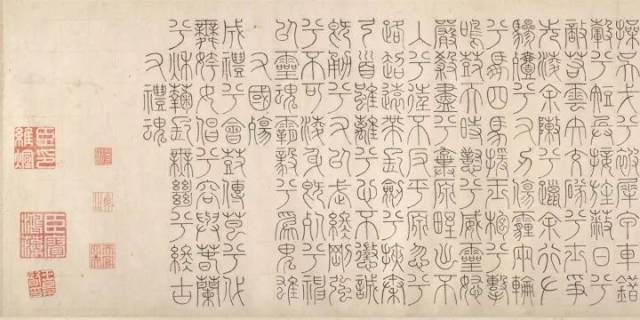 操吳戈兮被犀甲車錯
轂兮短兵接旌蔽日兮
敵若雲矢交墜兮士爭
先凌余陣兮躐余行左
驂殪兮右刃傷霾兩輪
兮縶四馬援玉枹兮擊
鳴鼓天時懟兮威靈怒
嚴殺盡兮棄原野出不
入兮往不反平原忽兮
路超遠帶長劍兮挾秦
弓首雖離兮心不懲誠
既勇兮又以武終剛強
兮不可凌身既死兮神
以靈魂魄毅兮為鬼雄
右國殤
成禮兮會鼓傳芭兮代
舞姱女倡兮容與春蘭
兮秋菊長無絕兮終古
右禮魂